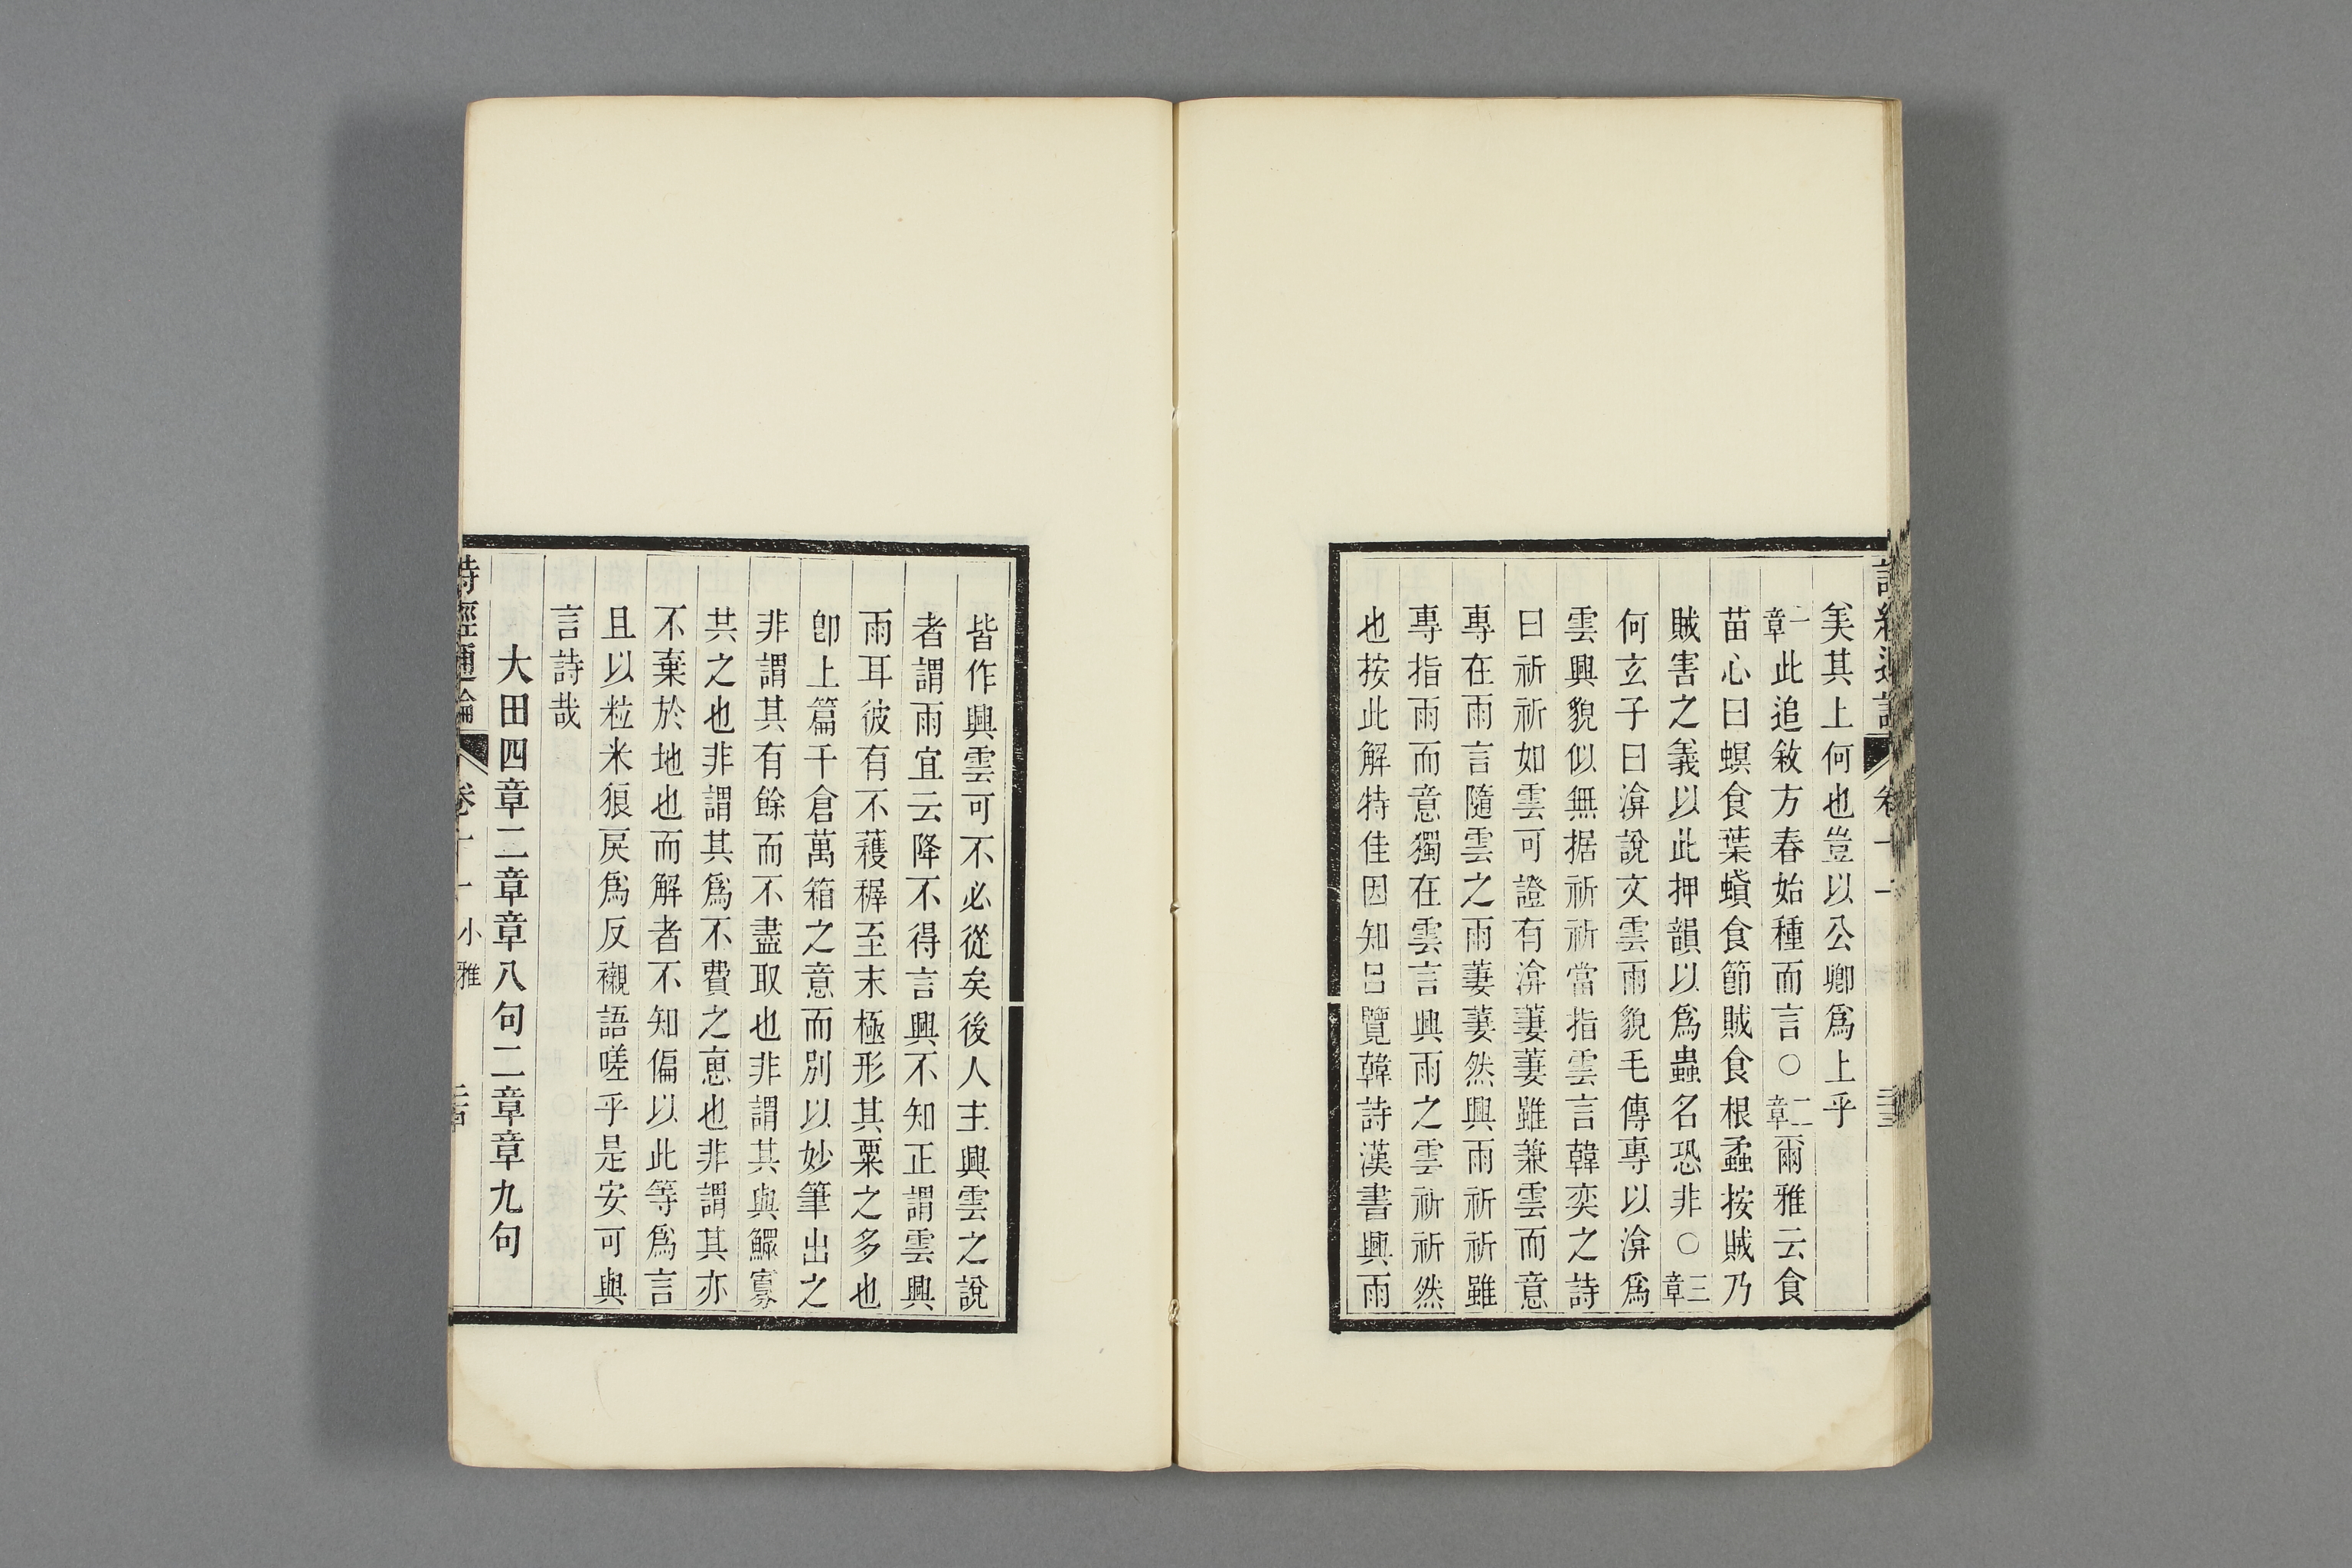 詩經通論 卷十一 三十三
矣其上何也豈以公卿爲上乎
一章此追敘方春始種而言○二章爾雅云食
苗心曰螟食葉蟘食節賊食根蟊按賊乃
賊害之義以此押韻以爲蟲名恐非○三章
何玄子曰渰說文雲雨貌毛傳專以渰爲
雲興貌似無据祈祈當指雲言韓奕之詩
曰祈祈如雲可證有渰萋萋雖兼雲而意
專在雨言隨雲之雨萋萋然興雨祈祈雖
專指雨而意獨在雲言興雨之雲祈祈然
也按此解特佳因知呂覽韓詩漢書興雨
皆作興雲可不必從矣後人主興雲之說
者謂雨宜云降不得言興不知正謂雲興
雨耳彼有不穫穉至末極形其粟之多也
卽上篇千倉萬箱之意而別以妙筆出之
非謂其有餘而不盡取也非謂其與鰥寡
共之也非謂其爲不費之恵也非謂其亦
不棄於地也而解者不知偏以此等爲言
且以粒米狼戾爲反襯語嗟乎是安可與
言詩哉
大田四章二章章八句二章章九句
詩經通論 卷十一 小雅